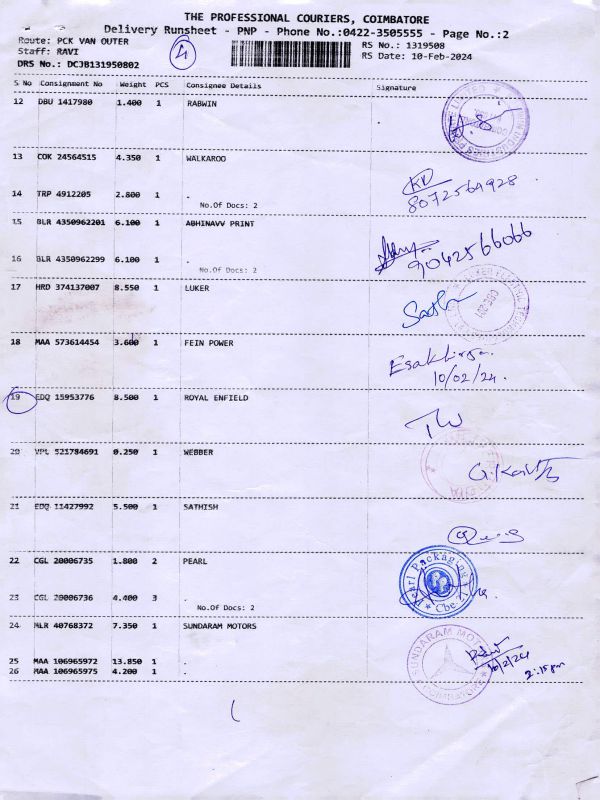 THE PROFESSIONAL COURIERS, COIMBATORE
Delivery Runsheet - PNP - Phone No.:0422-3505555 - Page No.:2
Route: PCK VAN OUTER
Staff: RAVI
DRS No.: DCJB131950802
4
RS No.: 1319508
RS Date: 10-Feb-2024
S No Consignment No Weight PCS Consignee Details Signature
12 DBU 1417980 1.400 1 RABWIN
13 COK 24564515 4.350 1 WALKAROO
14 TRP 4912205 2.800 1 .
No.Of Docs: 2
8072564928
15 BLR 4350962201 6.100 1 ABHINAVV PRINT
9042566066
16 BLR 4350962299 6.100 1 .
No.Of Docs: 2
17 HRD 374137007 8.550 1 LUKER
18 MAA 573614454 3.600 1 FEIN POWER
10/02/24.
19 EDQ 15953776 8.500 1 ROYAL ENFIELD
20 VPL 521784691 0.250 1 WEBBER
21 EDQ 11427992 5.500 1 SATHISH
22 CGL 20006735 1.800 2 PEARL
Pearl Packaging
Cbe
23 CGL 20006736 4.400 3 .
No.Of Docs: 2
24 MLR 40768372 7.350 1 SUNDARAM MOTORS
SUNDARAM MOTORS
COIMBATORE
10/2/24
2:15pm
25 MAA 106965972 13.850 1 .
26 MAA 106965975 4.200 1 .